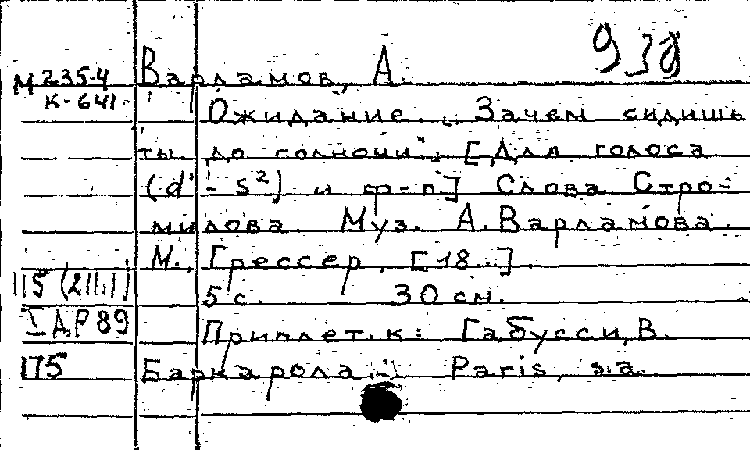 938
М 235-4
К-641
Варламов, А.
Ожидание. „Зачем сидишь
ты до полночи“. [Для голоса
(d' - s²) и ф-п] Слова Стро-
милова Муз. А. Варламова.
М., Грессер, [18...].
115 (211.1)
5 с. 30 см.
I АР 89
Приплет. к: Габусси, В.
175
Баркарола... Paris, s.a.